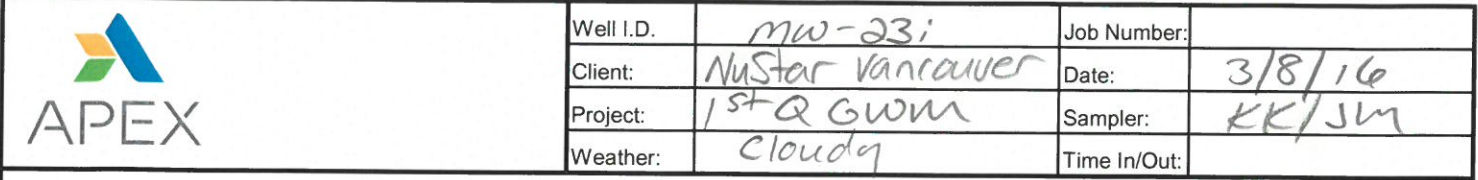 Well I.D. MW-23i Job Number:
Client: NuStar Vancouver Date: 3/8/16
APEX Project: 1st Q GWM Sampler: KK/JM
Weather: Cloudy Time In/Out: